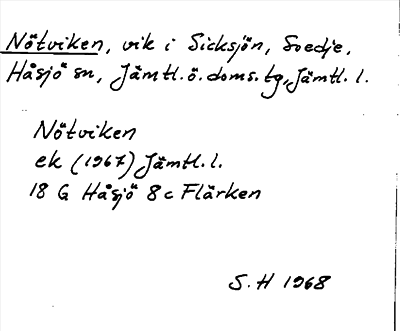 Nötviken, vik i Sicksjön, Svedje,
Håsjö sn, Jämtl.ö.doms.tg, Jämtl. l.
Nötviken
ek (1967) Jämtl. l.
18 G Håsjö 8 c Flärken
S. H 1968